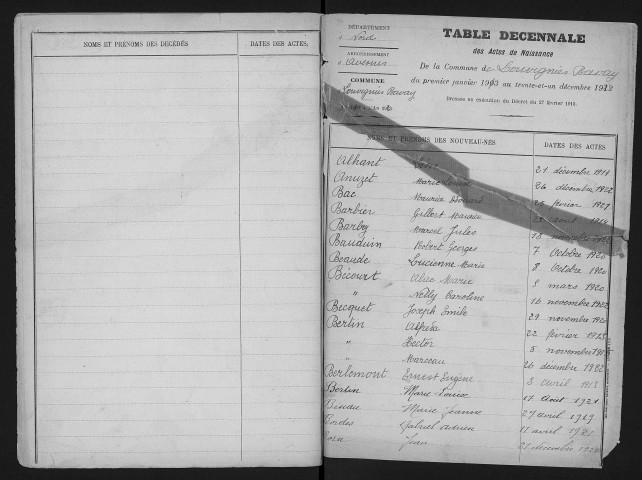 NOMS ET PRENOMS DES DECÉDÉS
DATES DES ACTES.
DÉPARTEMENT
Nord
ARRONDISSEMENT
d'Avesnes
COMMUNE
Louvignies Bavay
TABLE DECENNALE
des Actes de Naissance
De la Commune de Louvignies Bavay
du premier janvier 1913 au trente-et-un décembre 1922
Dressée en exécution du Décret du 27 février 1913.
NOMS ET PRENOMS DES NOUVEAU-NÉS
DATES DES ACTES
Alhant 21 décembre 1914
Anuzet Marie 26 décembre 1922
Bac Maurice février 1921
Barbier Gilbert Maurice
Barbry Marcel Jules
Bauduin Robert Georges 7 Octobre 1920
Beaude Lucienne Marie 8 Octobre 1920
Bécourt Alice Marie 3 mars 1920
" Nelly Caroline 16 novembre 1922
Becquet Joseph Emile 29 novembre
Bertin 22 février 1913
" Hector 5 novembre
" Marceau 26 décembre 1922
Berlemont Ernest Eugène 3 avril 1913
Bertin Marie Louise 17 Août 1921
Marie Jeanne 27 avril 1919
Bordes Gabriel Adrien 11 avril 1921
Jean décembre